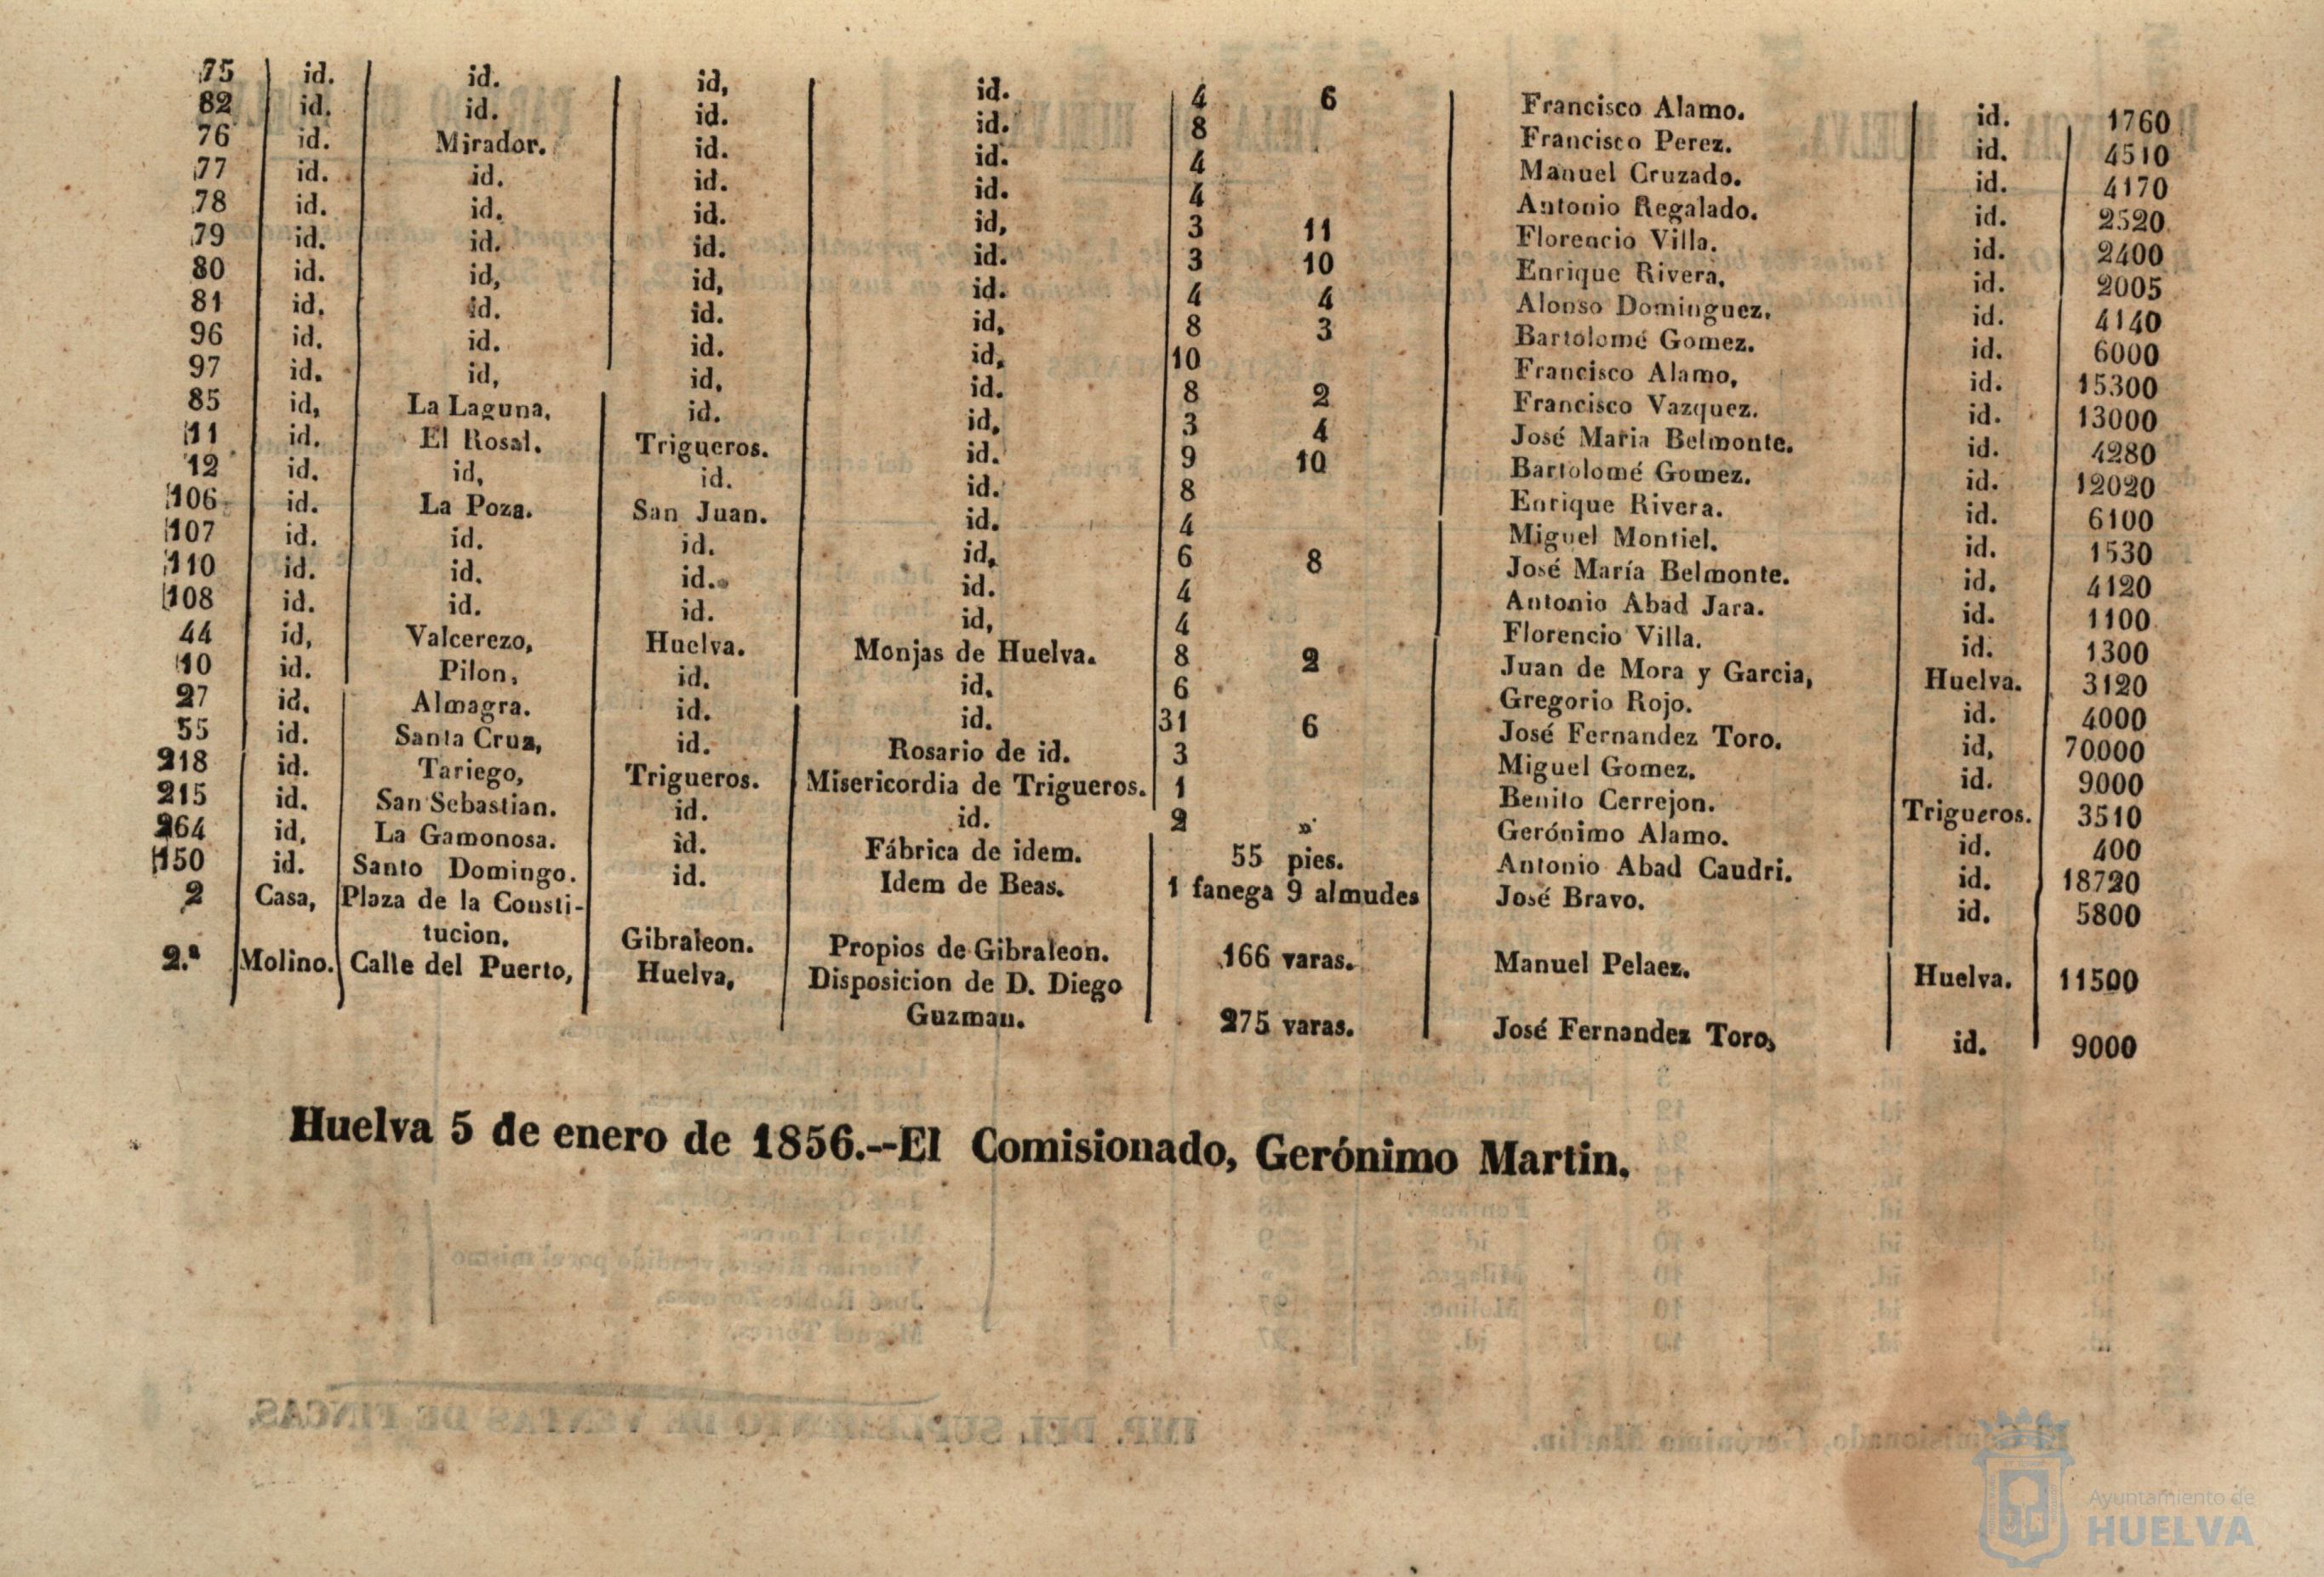 75 id. id. id, id. 4 6 Francisco Alamo. id. 1760
82 id. id. id. id. 8 Francisco Perez. id. 4510
76 id. Mirador. id. id. 4 Manuel Cruzado. id. 4170
77 id. id. id. id. 4 Antonio Regalado. id. 2520
78 id. id. id. id, 3 11 Florencio Villa. id. 2400
79 id. id. id. id. 3 10 Enrique Rivera, id. 2005
80 id. id, id, id. 4 4 Alonso Dominguez, id. 4140
81 id, id. id. id, 8 3 Bartolomé Gomez. id. 6000
96 id. id. id. id, 10 Francisco Alamo, id. 15300
97 id. id, id, id. 8 2 Francisco Vazquez. id. 13000
85 id, La Laguna, id. id, 3 4 José Maria Belmonte. id. 4280
11 id. El Rosal. Trigueros. id. 9 10 Bartolomé Gomez. id. 12020
12 id. id, id. id. 8 Enrique Rivera. id. 6100
106 id. La Poza. San Juan. id. 4 Miguel Montiel. id. 1530
107 id. id. id. id, 6 8 José María Belmonte. id. 4120
110 id. id. id. id. 4 Antonio Abad Jara. id. 1100
108 id. id. id. id, 4 Florencio Villa. id. 1300
44 id, Valcerezo, Huelva. Monjas de Huelva. 8 2 Juan de Mora y Garcia, Huelva. 3120
10 id. Pilon, id. id. 6 Gregorio Rojo. id. 4000
27 id. Almagra. id. id. 31 6 José Fernandez Toro. id, 70000
55 id. Santa Cruz, id. Rosario de id. 3 Miguel Gomez. id. 9000
218 id. Tariego, Trigueros. Misericordia de Trigueros. 1 Benito Cerrejon. Trigueros. 3510
215 id. San Sebastian. id. id. 2 » Gerónimo Alamo. id. 400
264 id, La Gamonosa. id. Fábrica de idem. 55 pies. Antonio Abad Caudri. id. 18720
150 id. Santo Domingo. id. Idem de Beas. 1 fanega 9 almudes José Bravo. id. 5800
2 Casa, Plaza de la Consti-
tucion, Gibraleon. Propios de Gibraleon. 166 varas. Manuel Pelaez. Huelva. 11500
2.ª Molino. Calle del Puerto, Huelva, Disposicion de D. Diego
Guzman. 275 varas. José Fernandez Toro, id. 9000
Huelva 5 de enero de 1856.--El Comisionado, Gerónimo Martin.
IMP. DEL SUPLEMENTO DE VENTAS DE FINCAS.
El Comisionado, Gerónimo Martin.
Ayuntamiento de
HUELVA